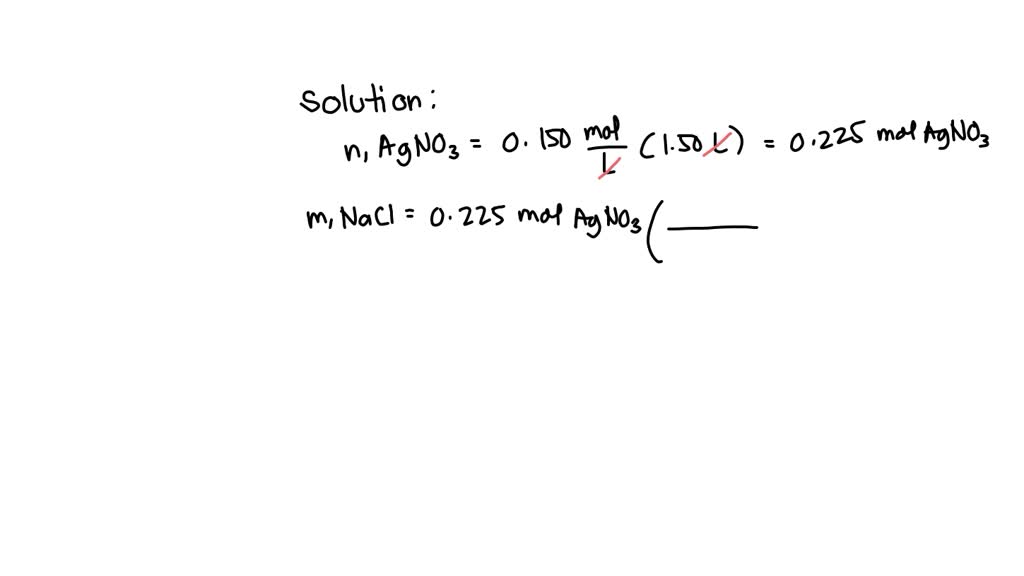 Solution:
n, AgNO₃ = 0.150 mol/L (1.50 L) = 0.225 mol AgNO₃
m, NaCl = 0.225 mol AgNO₃ (